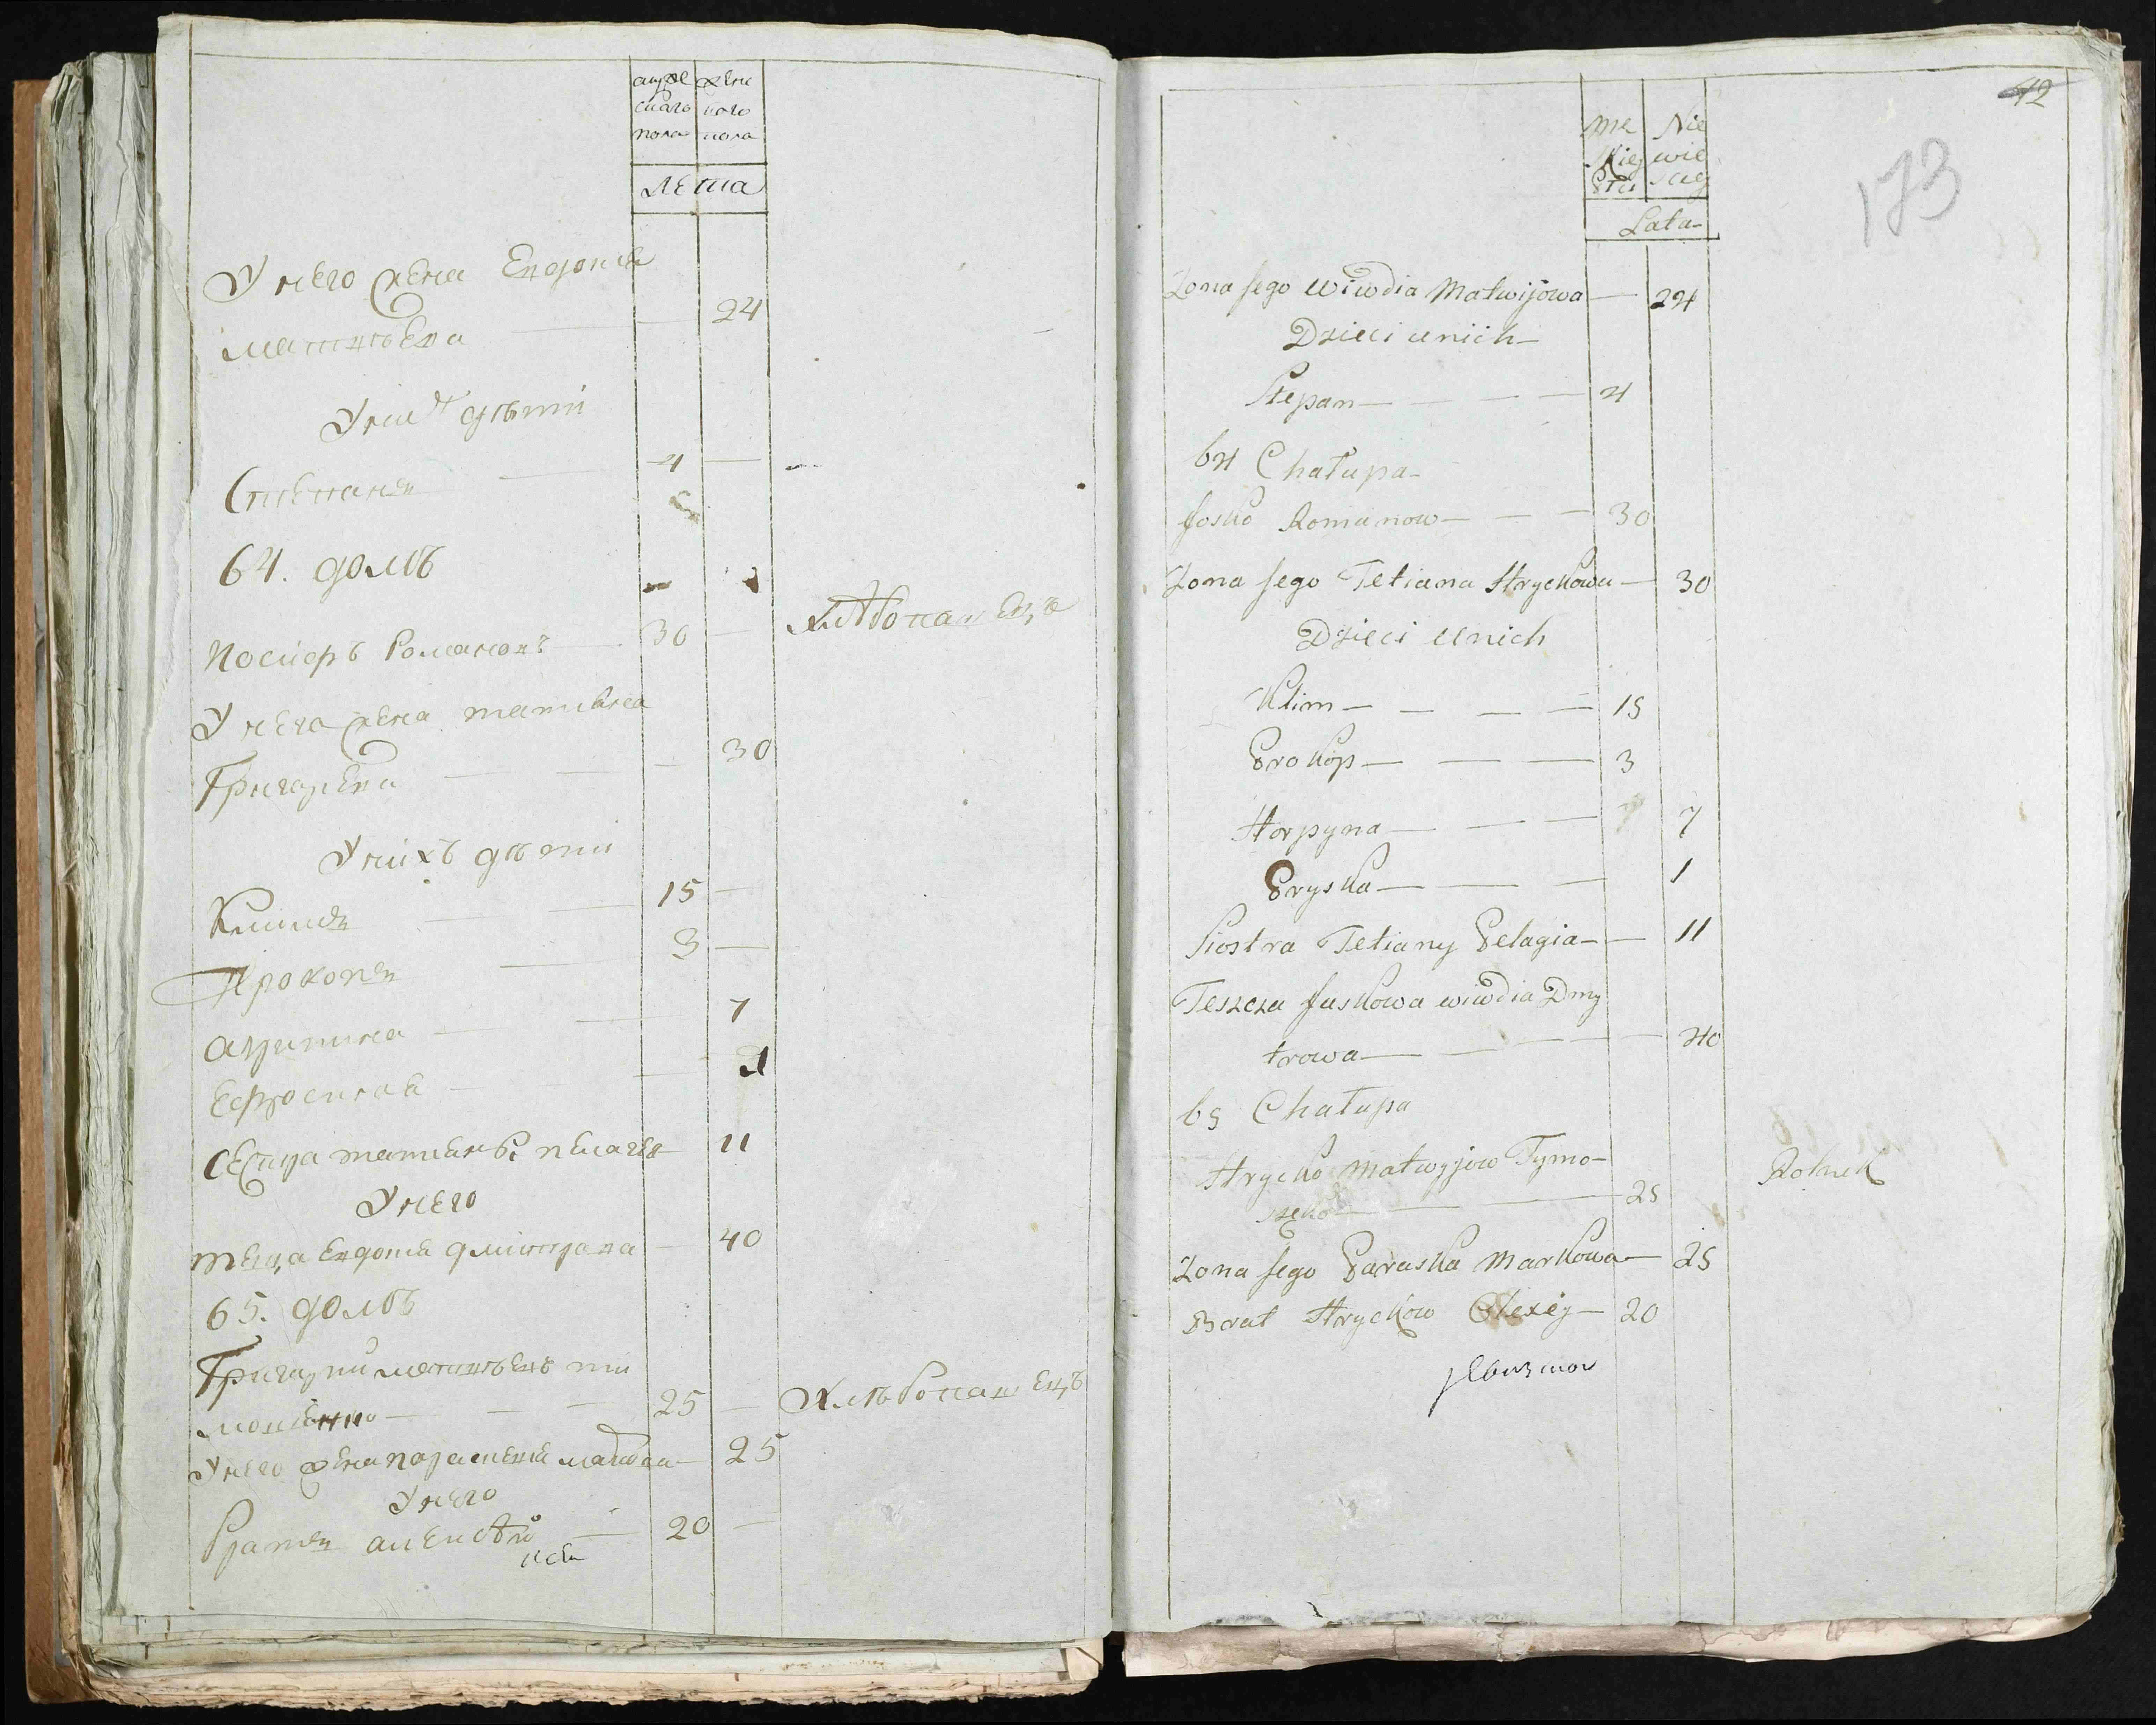 муже жене
скаго наго
пола пола
лета
У него жена Евдокия
матвѣева 24
У них дѣти
Степанъ 4
64. домъ
Иосифъ Романовъ 30 хлѣбопашецъ
У него жена татияна
Григорева 30
У нихъ дѣти
Климъ 15
Прокопъ 3
агрипина 7
Ефросиния 1
сестра татияны пелагея 11
У него
теща Евдокия дмитрава 40
65. домъ
Григорий матвѣевъ ти
мошенко 25 хлѣбопашецъ
У него жена параскевия маркова 25
У него
братъ алексѣй 20
42
173
Mę Nie
skiej wie
Płci sciej
Lata
Zona jego Wiwdia Matwijowa 24
Dzieci unich
Stepan 4
64 Chałupa
Josko Romanow 30
Zona jego Tetiana Hryckowa 30
Dzieci unich
Klim 15
Prokop 3
Horpyna 7
Pryska 1
Siostra Tetiany Pelagia 11
Teszcza Juskowa wiwdia Dmy
trowa 40
65 Chałupa
Hrycko Matwyjow Tymo
szęko 25 Rolnik
Zona jego Paraska Markowa 25
Brat Hryckow Olexiej 20